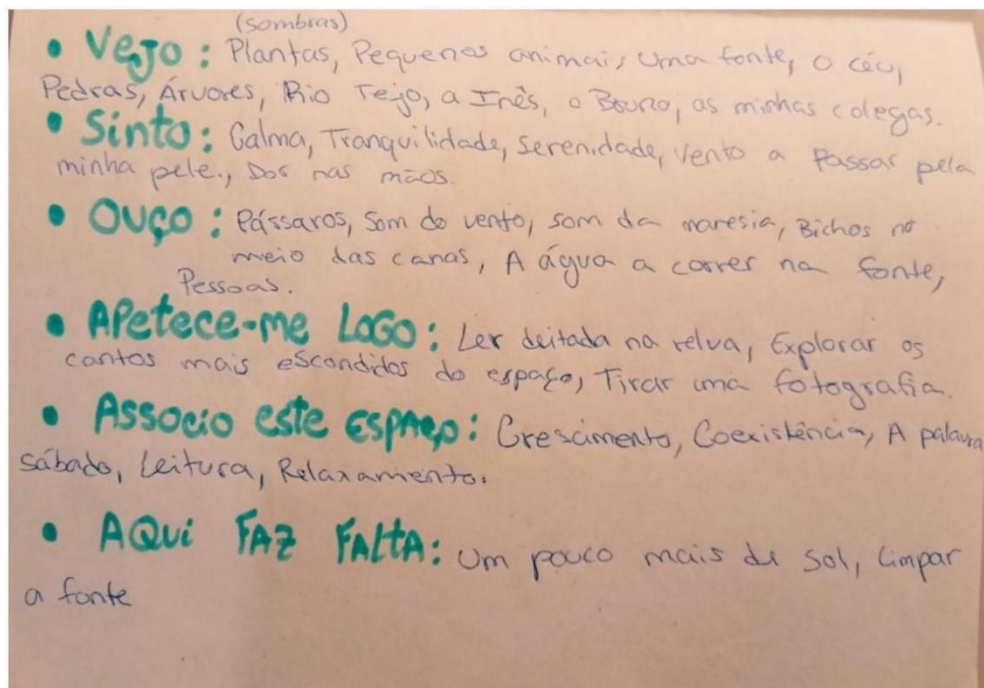 (sombras)
• Vejo: Plantas, Pequenos animais, uma fonte, o céu,
Pedras, Árvores, Rio Tejo, a Inês, o Bruno, as minhas colegas.
• Sinto: Calma, Tranquilidade, Serenidade, Vento a Passar pela
minha pele., Dor nas mãos.
• OUÇO: Pássaros, Som do vento, som da maresia, Bichos no
meio das canas, A água a correr na fonte,
Pessoas.
• APetece-me LOGO: Ler deitada na relva, Explorar os
cantos mais escondidos do espaço, Tirar uma fotografia.
• Associo este ESPAÇO: Crescimento, Coexistência, A palavra
sábado, Leitura, Relaxamento.
• AQUi FAZ FALTA: Um pouco mais de Sol, Limpar
a fonte